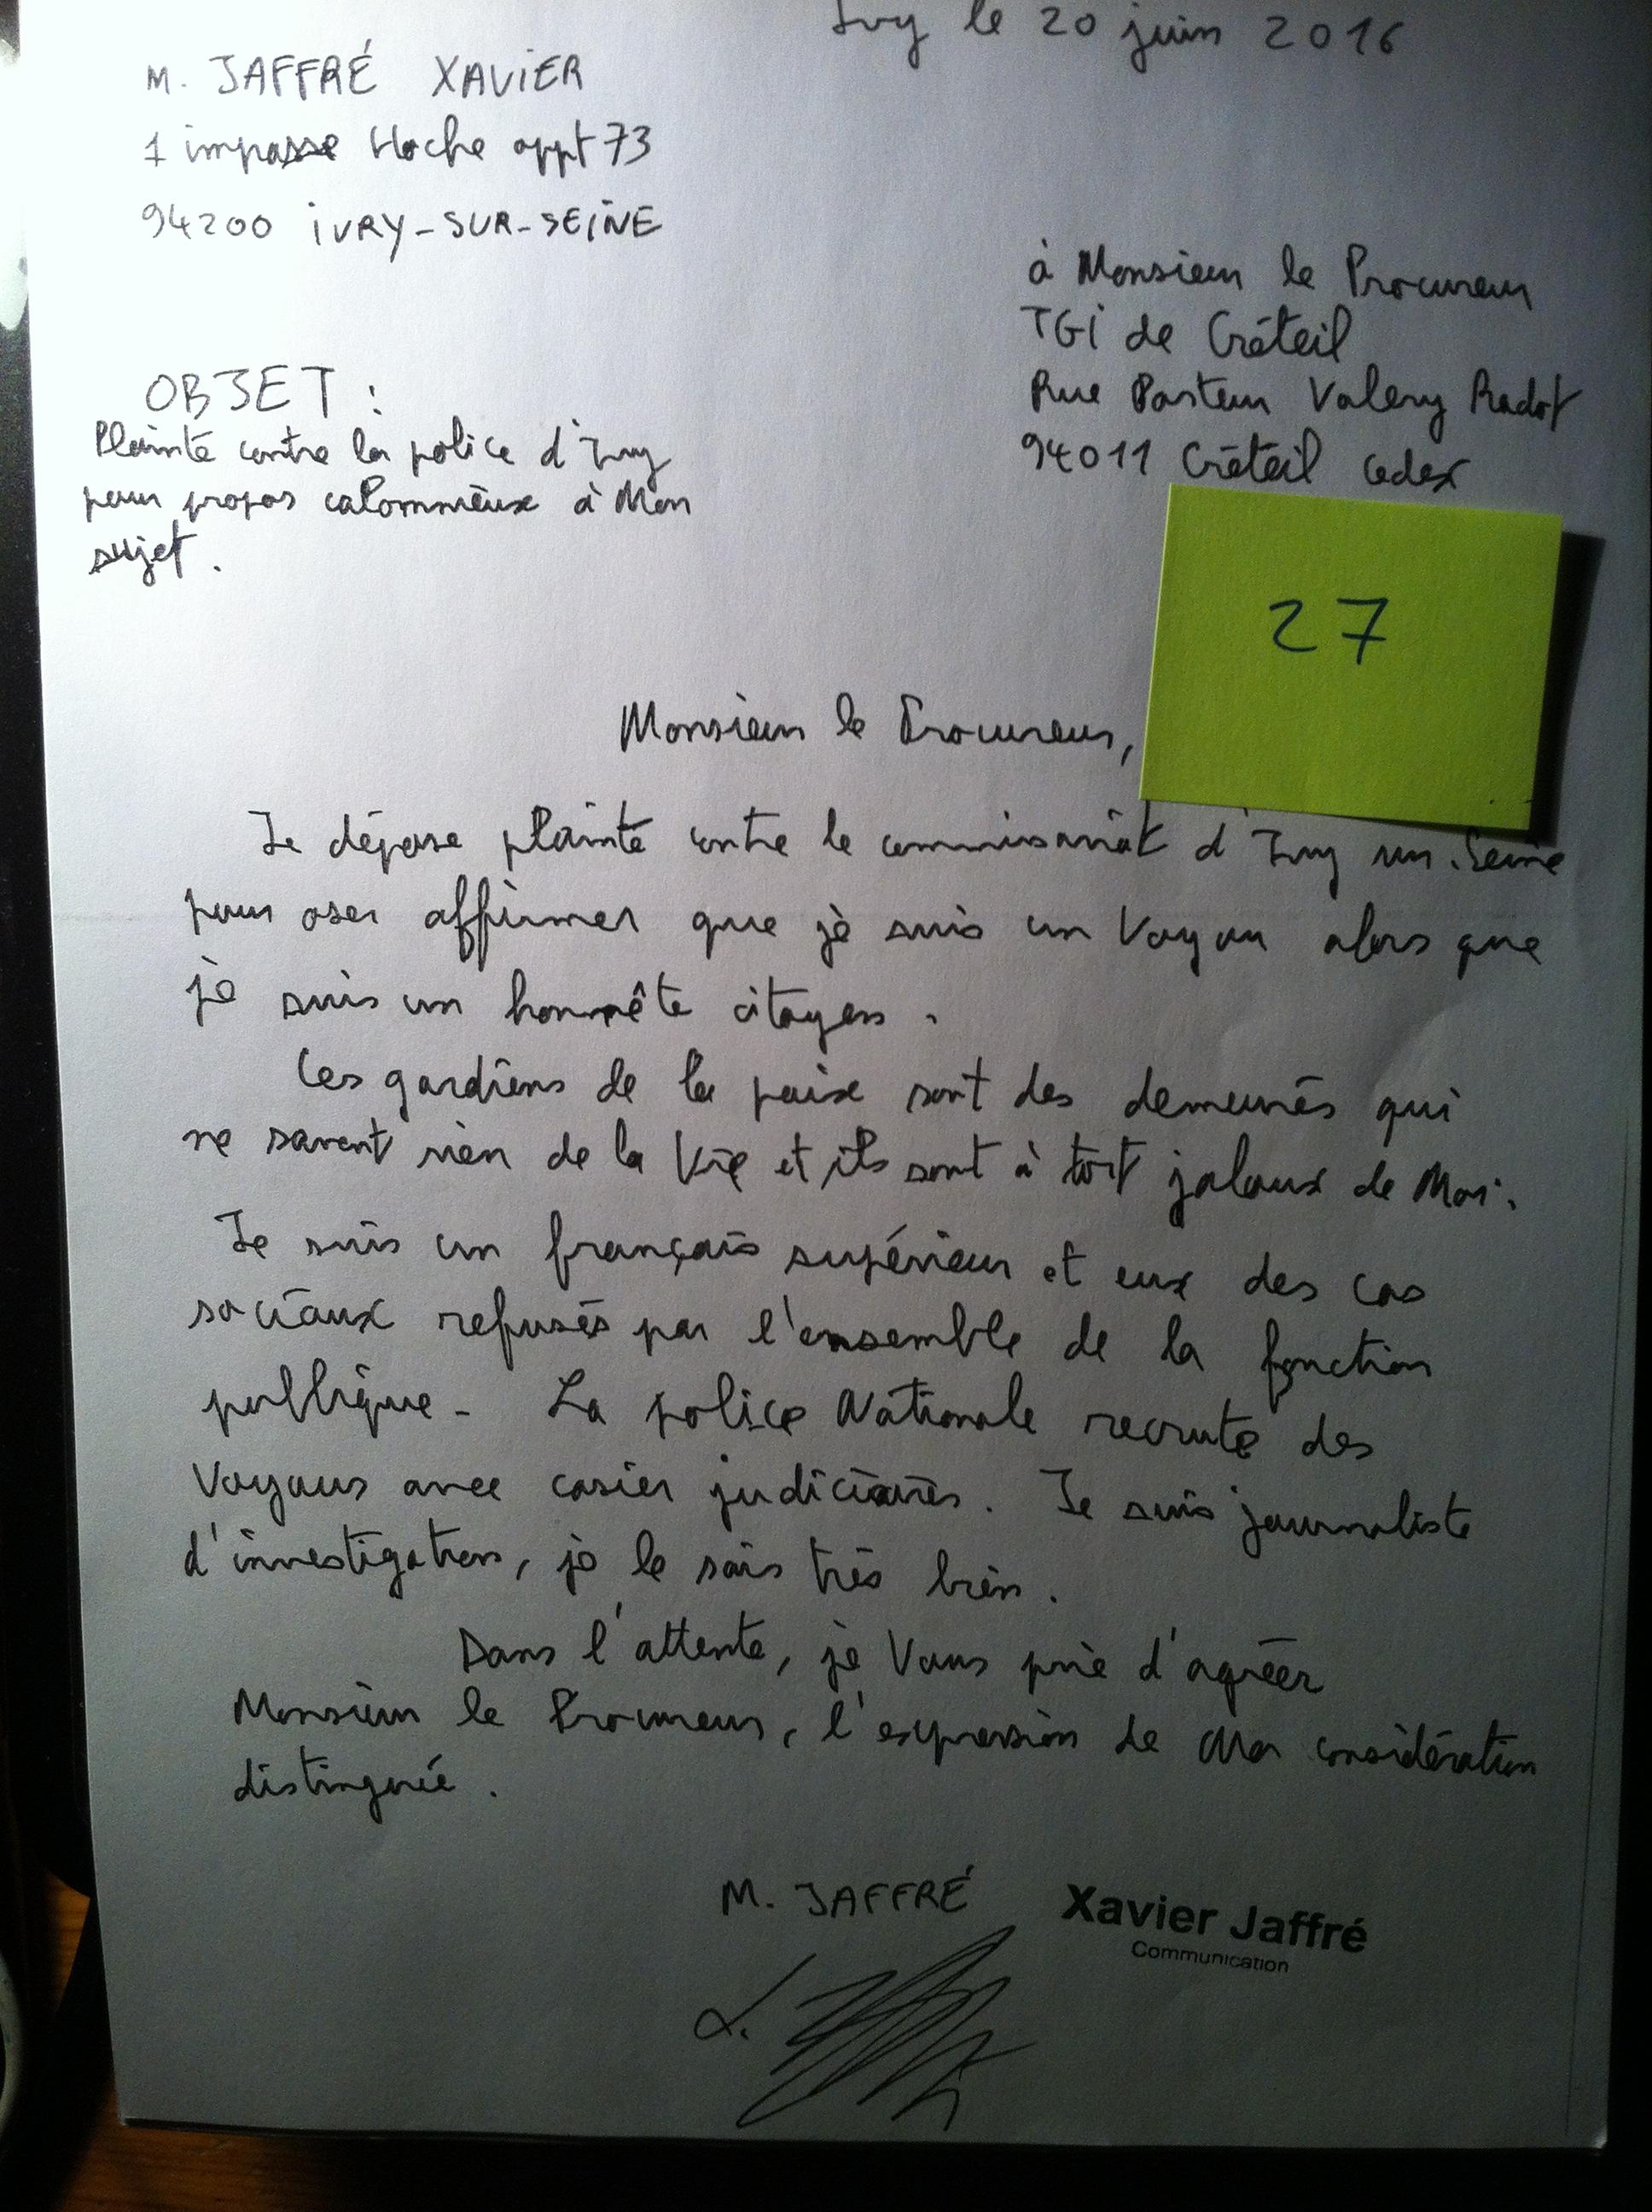 Ivry le 20 juin 2016
M. JAFFRÉ XAVIER
1 impasse Hoche appt 73
94200 IVRY-SUR-SEINE
à Monsieur le Procureur
TGI de Créteil
Rue Pasteur Valery Radot
94011 Créteil cedex
OBJET :
Plainte contre la police d'Ivry
pour propos calomnieux à Mon
sujet.
27
Monsieur le Procureur,
Je dépose plainte contre le commissariat d'Ivry sur-Seine
pour oser affirmer que je suis un Voyou alors que
je suis un honnête citoyen.
Ces gardiens de la paix sont des demeurés qui
ne savent rien de la Vie et ils sont à tort jaloux de Moi.
Je suis un français supérieur et eux des cas
sociaux refusés par l'ensemble de la fonction
publique. La police Nationale recrute des
Voyous avec casier judiciaires. Je suis journaliste
d'investigation, je le sais très bien.
Dans l'attente, je Vous prie d'agréer
Monsieur le Procureur, l'expression de Ma considération
distinguée.
M. JAFFRÉ
Xavier Jaffré
Communication